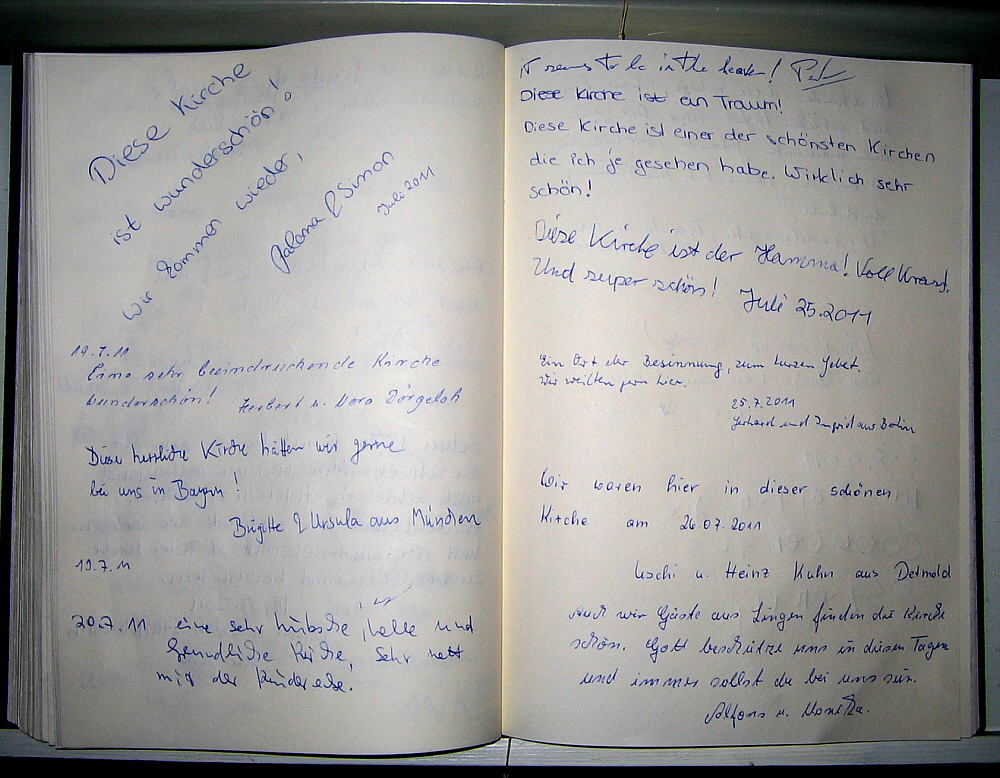 Diese Kirche
ist wunderschön!
Wir kommen wieder,
Paloma & Simon
Juli 2011
19.7.11
Eine sehr beeindruckende Kirche
wunderschön!
Herbert u. Nora Dörgeloh
Diese herrliche Kirche hätten wir gerne
bei uns in Bayern!
Brigitte & Ursula aus München
19.7.11
20.7.11 eine sehr hübsche, helle und
freundliche Kirche, sehr nett
mit der Kinderecke.
It seems to be in the heaven!
Diese Kirche ist ein Traum!
Diese Kirche ist einer der schönsten Kirchen
die ich je gesehen habe. Wirklich sehr
schön!
Diese Kirche ist der Hamma! Voll Krass!
Und super schön! Juli 25.2011
Ein Ort der Besinnung, zum kurzen Gebet.
Wir weilten gern hier.
25.7.2011
Gerhard und Ingrid aus Berlin
Wir waren hier in dieser schönen
Kirche am 26 07. 2011
Uschi u. Heinz Kuhn aus Detmold
Auch wir Gäste aus Lingen finden die Kirche
schön. Gott beschütze uns in diesen Tagen
und immer sollst du bei uns sein.
Alfons u. Monika.